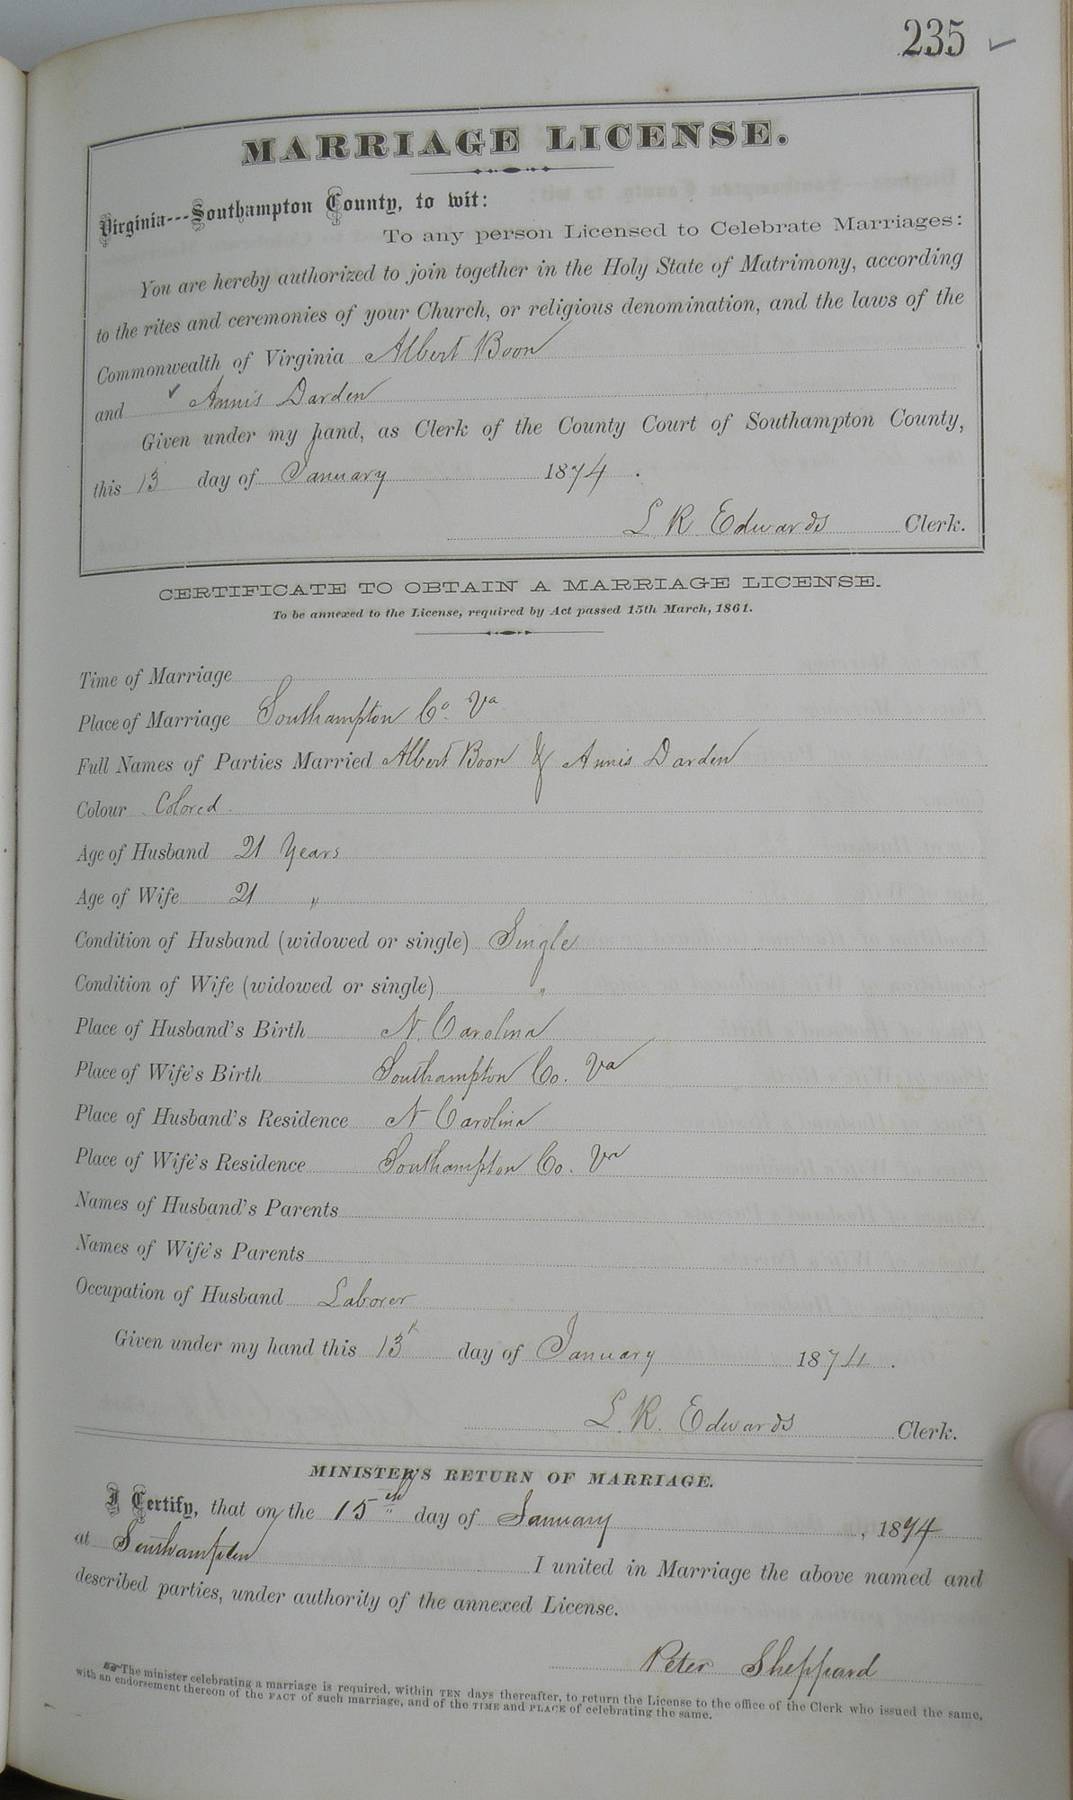 235 ✓
MARRIAGE LICENSE.
Virginia---Southampton County, to wit:
To any person Licensed to Celebrate Marriages:
You are hereby authorized to join together in the Holy State of Matrimony, according
to the rites and ceremonies of your Church, or religious denomination, and the laws of the
Commonwealth of Virginia Albert Boon
and ✓ Annis Darden
Given under my hand, as Clerk of the County Court of Southampton County,
this 13 day of January 1874.
L R Edwards Clerk.
CERTIFICATE TO OBTAIN A MARRIAGE LICENSE.
To be annexed to the License, required by Act passed 15th March, 1861.
Time of Marriage
Place of Marriage Southampton Co. Va
Full Names of Parties Married Albert Boon & Annis Darden
Colour Colored
Age of Husband 21 Years
Age of Wife 21 "
Condition of Husband (widowed or single) Single
Condition of Wife (widowed or single) "
Place of Husband's Birth N. Carolina
Place of Wife's Birth Southampton Co. Va
Place of Husband's Residence N Carolina
Place of Wife's Residence Southampton Co. Va
Names of Husband's Parents
Names of Wife's Parents
Occupation of Husband Laborer
Given under my hand this 13h day of January 1874.
L. R. Edwards Clerk.
MINISTER'S RETURN OF MARRIAGE.
I Certify, that on the 15th day of January, 1874
at Southampton I united in Marriage the above named and
described parties, under authority of the annexed License.
Peter Sheppard
☞ The minister celebrating a marriage is required, within TEN days thereafter, to return the License to the office of the Clerk who issued the same,
with an endorsement thereon of the FACT of such marriage, and of the TIME and PLACE of celebrating the same.